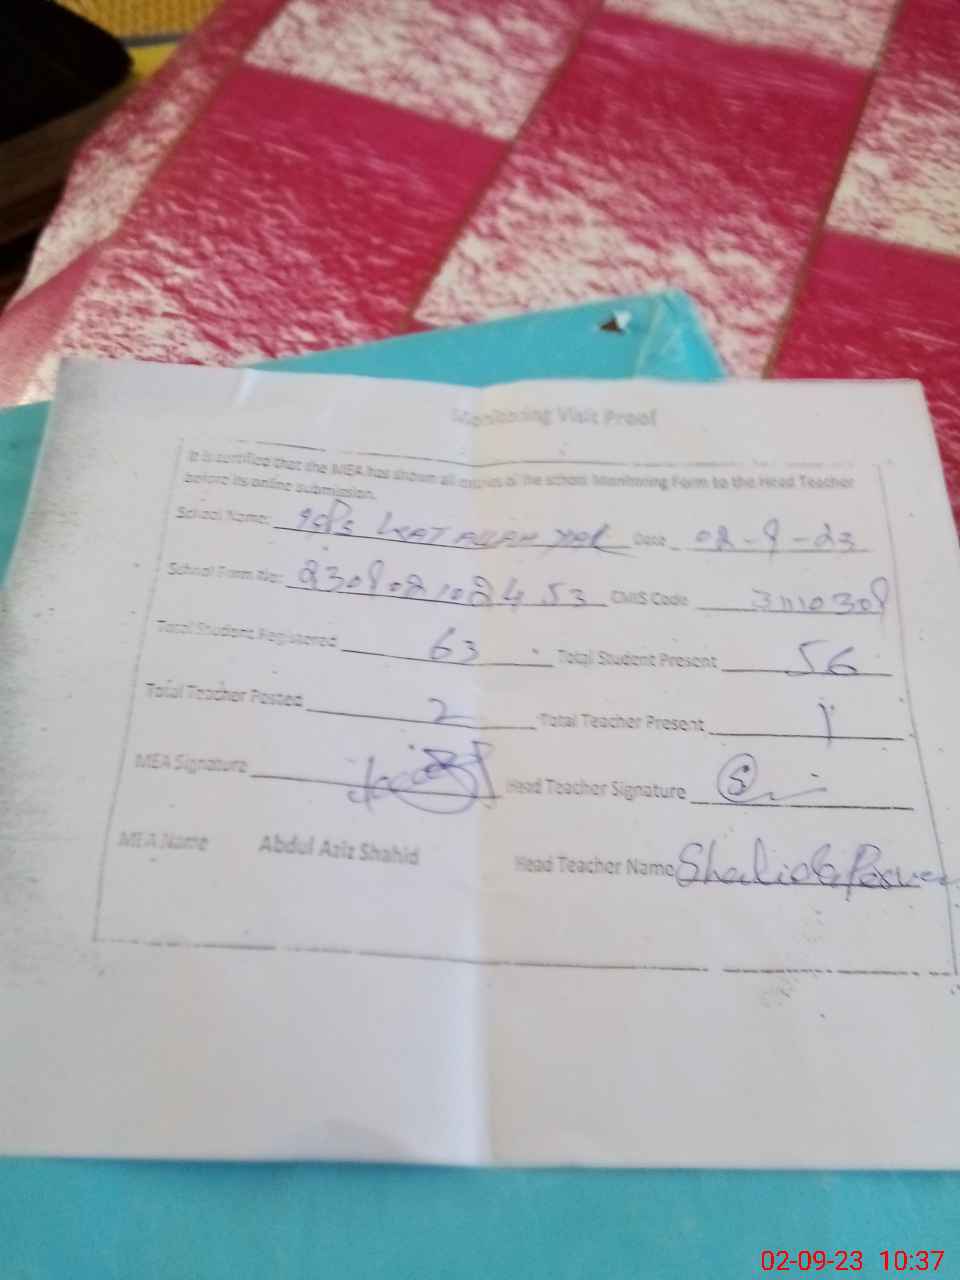 Monitoring Visit Proof
It is certified that the MEA has shown all entries of the school Monitoring Form to the Head Teacher
before its online submission.
School Name: ALLAH Date 02-9-23
School Form No: EMIS Code
Total Student Registered 63 Total Student Present 56
Total Teacher Posted 2 Total Teacher Present 1
MEA Signature Head Teacher Signature
MEA Name Abdul Aziz Shahid Head Teacher Name
02-09-23 10:37